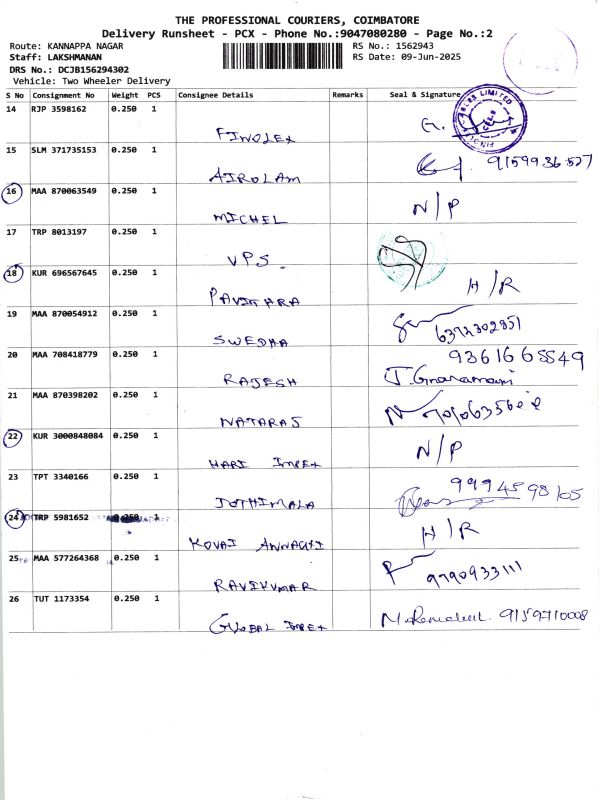 THE PROFESSIONAL COURIERS, COIMBATORE
Delivery Runsheet - PCX - Phone No.:9047080280 - Page No.:2
Route: KANNAPPA NAGAR
RS No.: 1562943
Staff: LAKSHMANAN
RS Date: 09-Jun-2025
DRS No.: DCJB156294302
Vehicle: Two Wheeler Delivery
S No Consignment No Weight PCS Consignee Details Remarks Seal & Signature
14 RJP 3598162 0.250 1
FINOLEX G.
15 SLM 371735153 0.250 1
AIROLAM 9159936527
16 MAA 870063549 0.250 1
MICHEL N/P
17 TRP 8013197 0.250 1
VPS.
18 KUR 696567645 0.250 1
PAVITHRA H/R
19 MAA 870054912 0.250 1
SWEDHA 6372302851
20 MAA 708418779 0.250 1 9361665549
RAJESH
21 MAA 870398202 0.250 1
NATARAJ
22 KUR 3000848084 0.250 1
HARI IMPEX N/P
23 TPT 3340166 0.250 1
JOTHIMALA 9994598105
24 TRP 5981652 0.250 1
KOVAI H/R
25 MAA 577264368 0.250 1
RAVIKUMAR 9790933111
26 TUT 1173354 0.250 1
GLOBAL IMPEX 9159710008